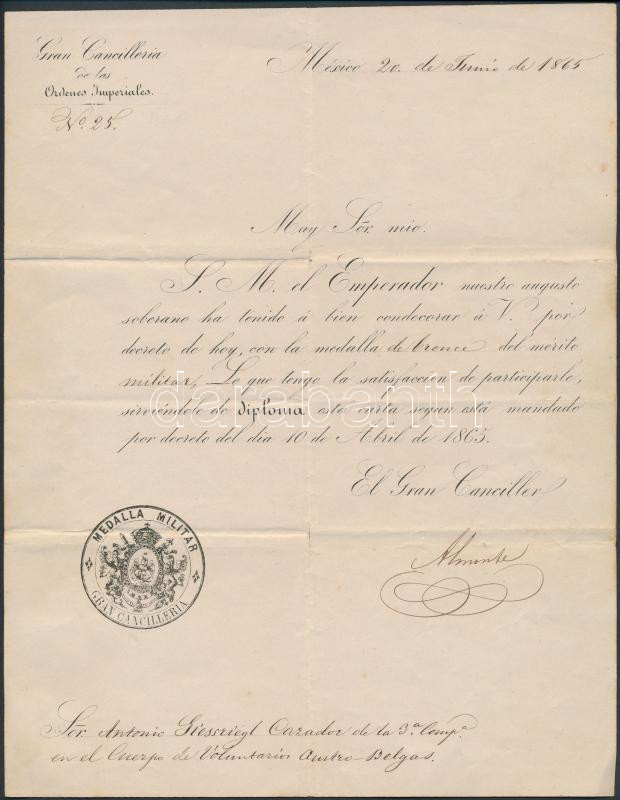 Gran Cancilleria
de las
Ordenes Imperiales.
No. 25.
México 20. de Junio de 1865
Muy Sór. mio.
S. M. el Emperador nuestro augusto
soberano ha tenido á bien condecorar á V. por
decreto de hoy, con la medalla de bronce del mérito
militar, Lo que tengo la satisfaccion de participarle,
sirviéndole de diploma esta carta segun está mandado
por decreto del dia 10 de Abril de 1865.
El Gran Canciller
Almonte
MEDALLA MILITAR
GRAN CANCILLERIA
Sór. Antonio Giessriegl Cazador de la 3ª Compª
en el Cuerpo de Voluntarios Austro-Belgas.
darabanth